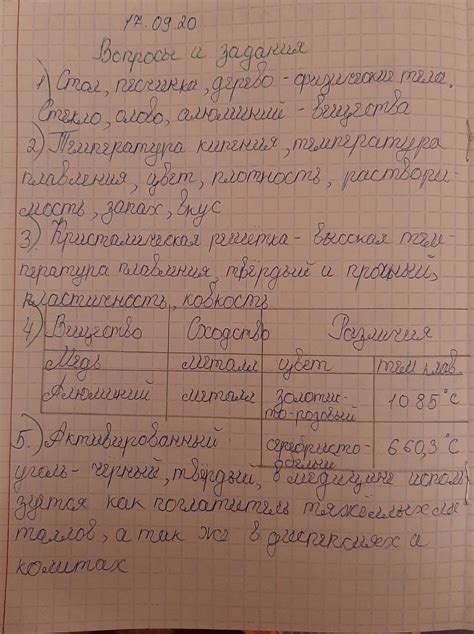 17.09.20
Вопросы и задания
1) Стол, песчинка, дерево - физические тела.
Стекло, олово, алюминий - вещества
2) Температура кипения, температура
плавления, цвет, плотность, раствори-
мость, запах, вкус
3) Кристалическая решётка - высокая тем-
пература плавления, твёрдый и прочный,
пластичность, ковкость
4) Вещество Сходство Различия
Медь металл цвет тем. плав.
Алюминий металл золотис-
то-розовый 1085°C
5.) Активированный серебристо-
белый 660,3°C
уголь - чёрный, твёрдый, в медицине исполь
зуется как поглатитель тяжёлых ме
таллов, а так же в диспепсиях и
колитах